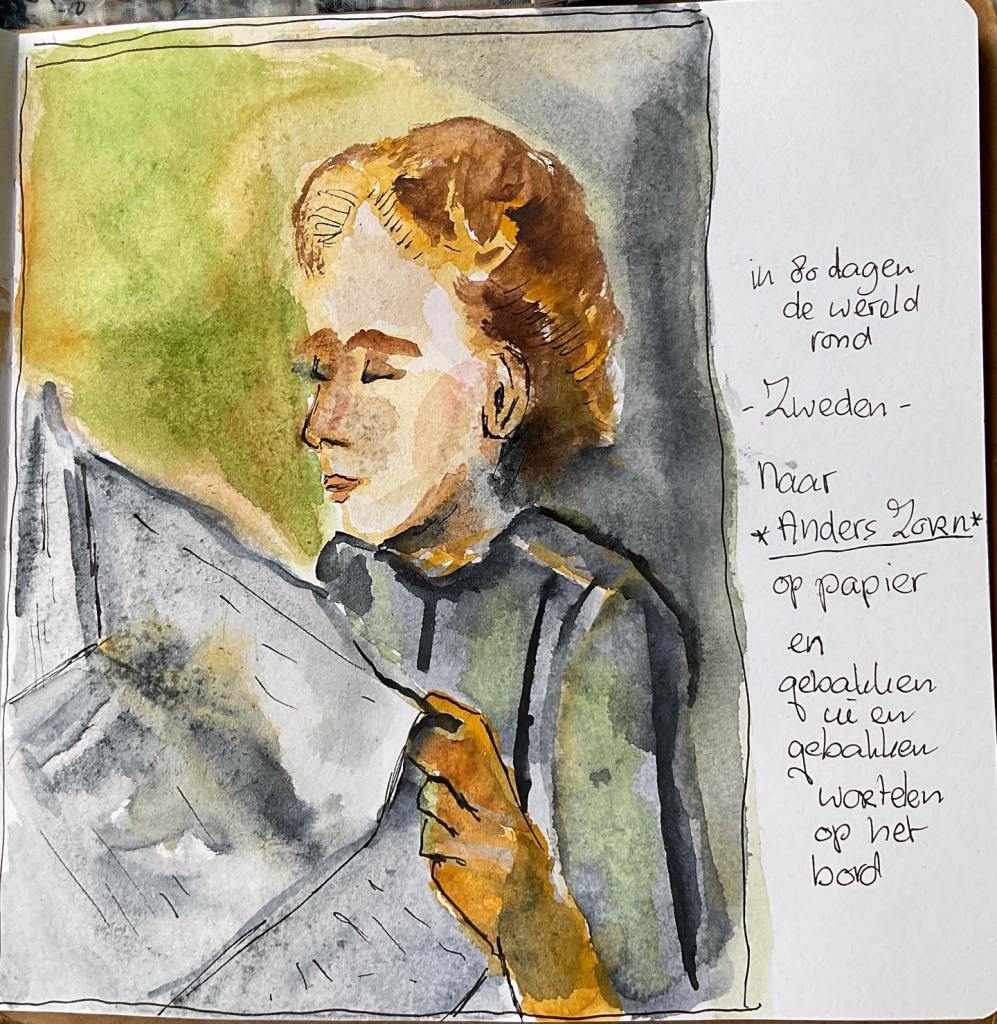 in 80 dagen
de wereld
rond
- Zweden -
Naar
* Anders Zorn *
op papier
en
gebakken
ui en
gebakken
wortelen
op het
bord